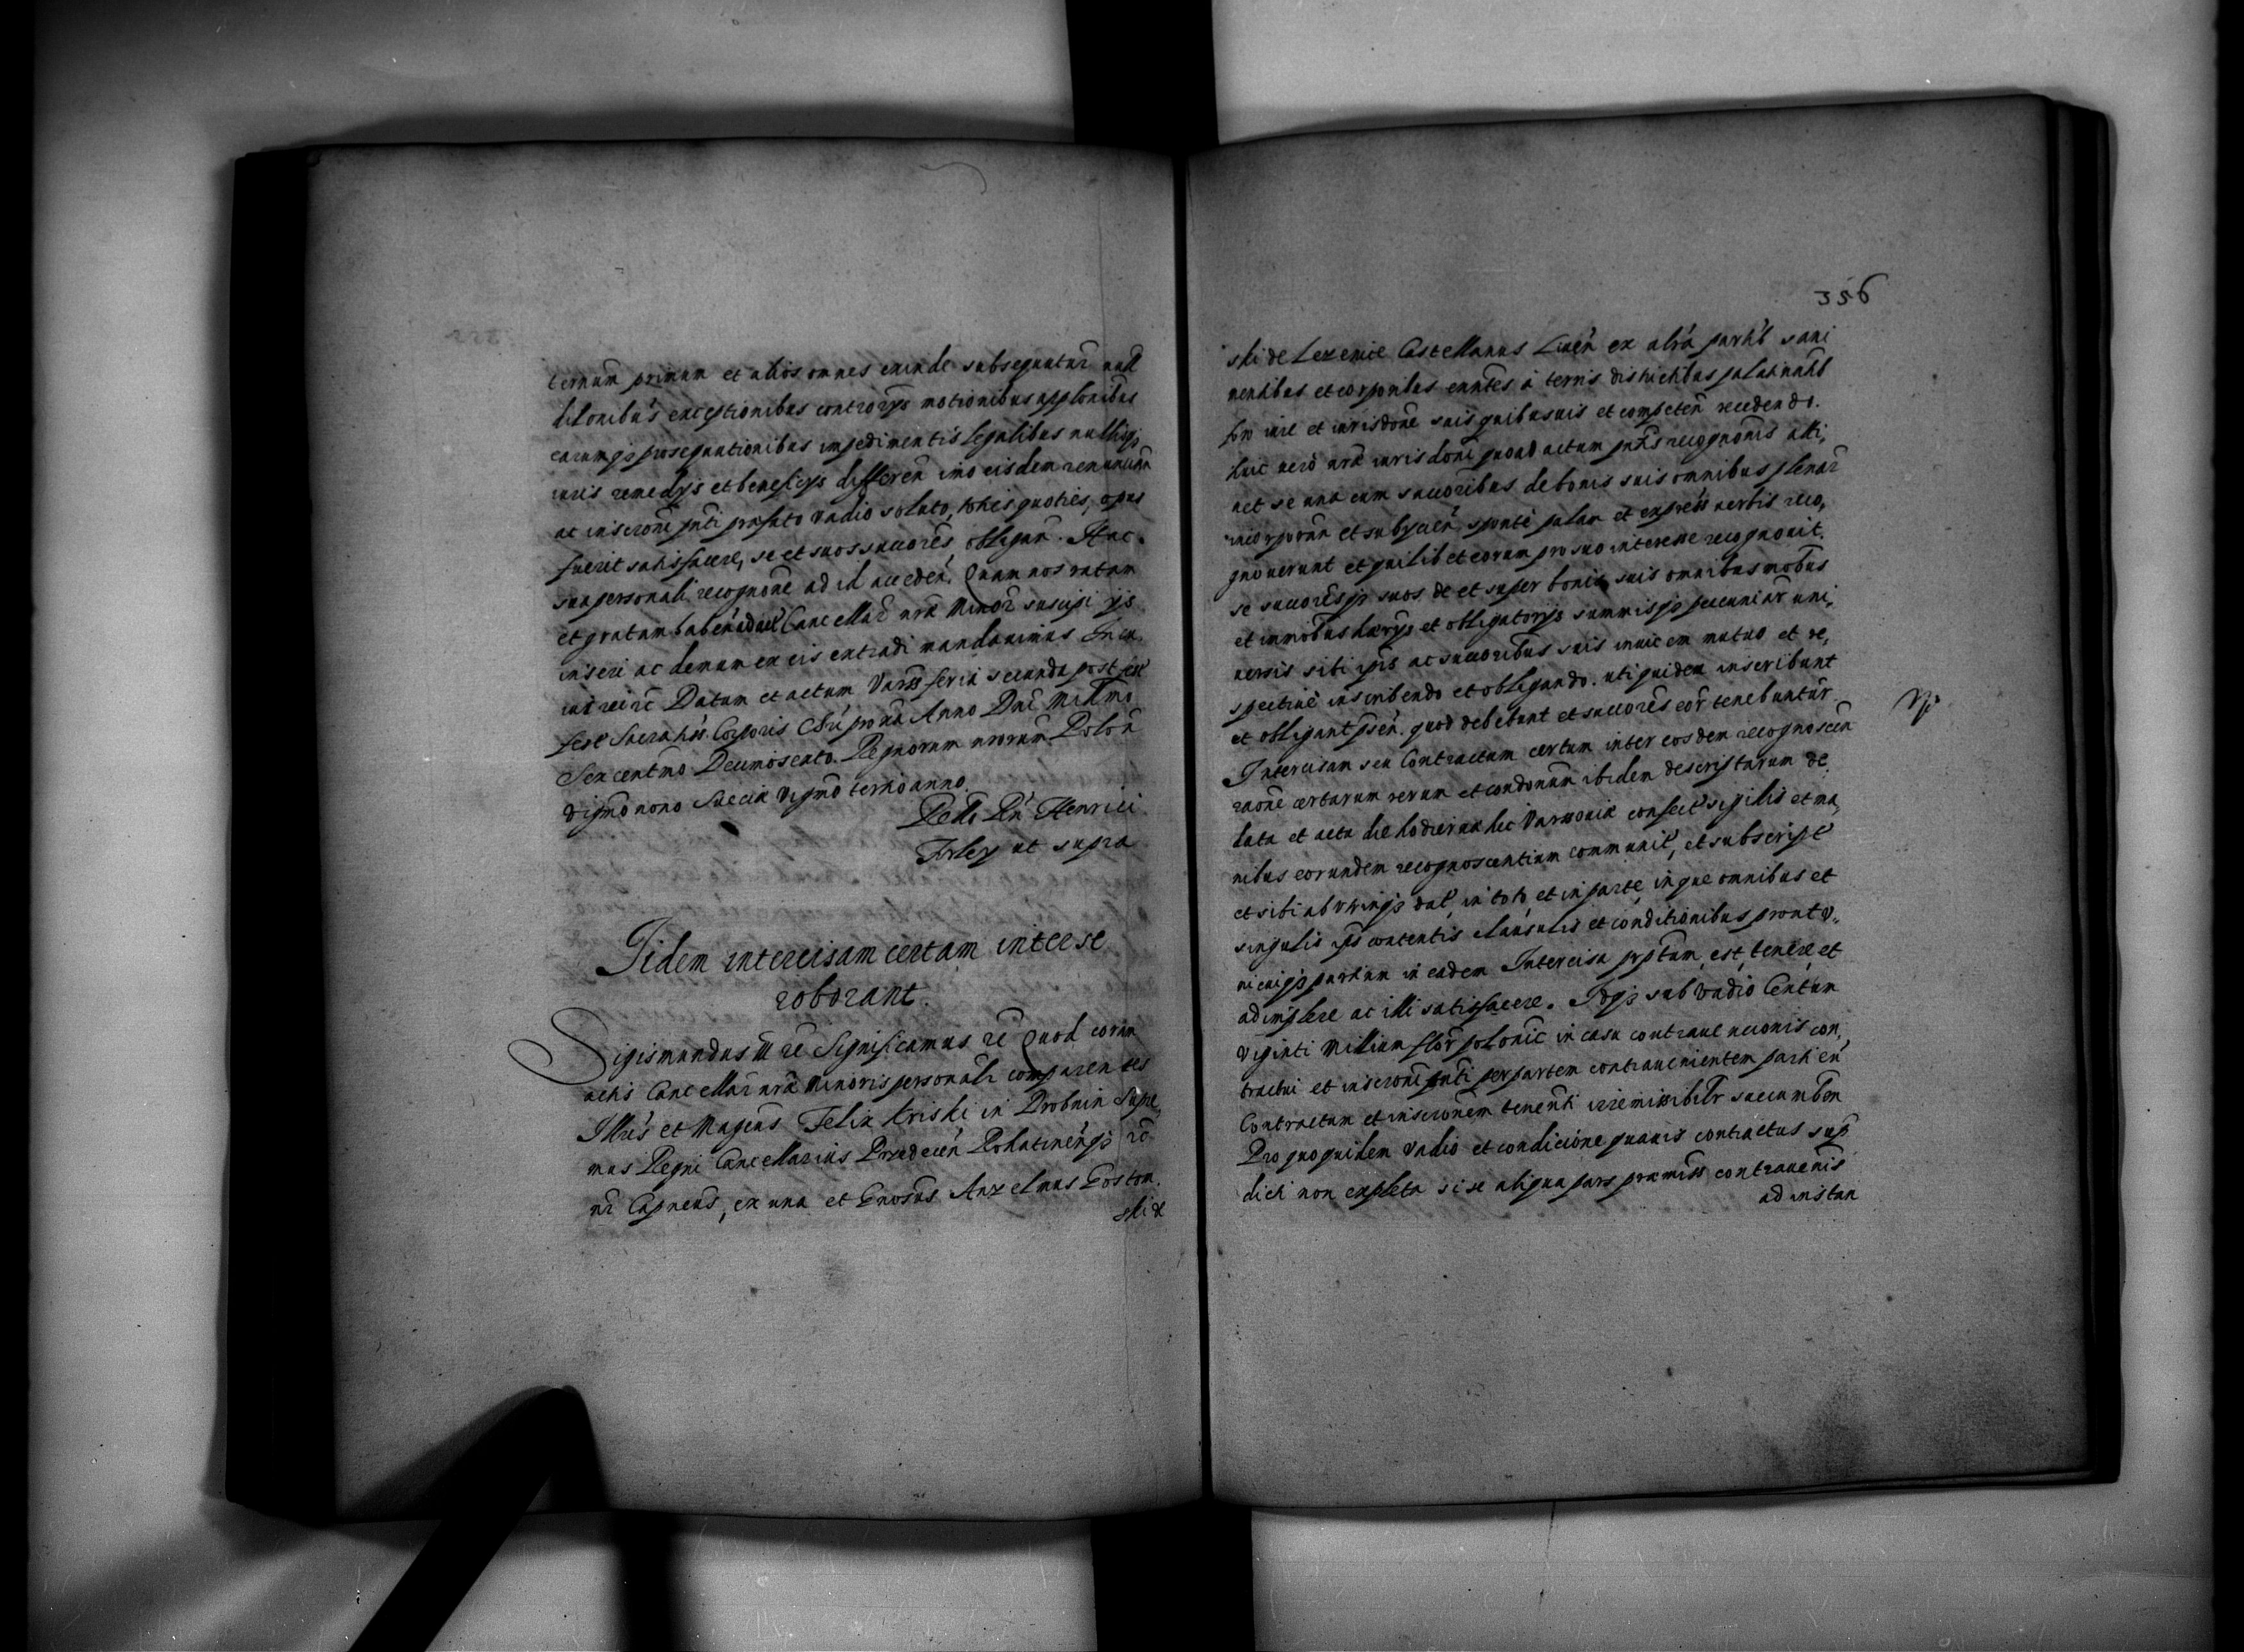 ternum primum et alios omnes exinde subsequntur null
dilonibus exceptionibus controrys motionibus applonibus
earumqz prosequutionibus impedimentis legalibus nullisqz
iuris remedys et beneficys differen imo eisdem renuncian
ac inscroni pnti prefato vadio soluto, toties quoties, opus
fuerit satisfacere, se et suos succores, obligan. Hac
sua personali recognone ad id acceden. Quam nos ratam
et gratam haben Cancellar nrae Minor suscipi ys
inseri ac demum ex eis extradi mandauimus In cu
ius rei rc Datum et actum Varss feria secunda post
fest Sacratiss. Corporis Chri proxa Anno Dni Millmo
Sexcentmo Decimosexto. Regnorum nrorum Polon
vigmo nono Sueciae vigmo tertio anno.
Henrici
Firley ut supra
Iidem intercisam certam inter se
roborant.
Sigismundus III rc Significamus rc Quod coram
actis Cancellar nrae Minoris personali comparentes
Illris et Magcus Felix Kriski in Drobnin Supre,
mus Regni Cancellarius Rohatinenqz
Capneus, ex una et Gnosus Anzelmus Gostom,
ski de
356
ski de Lezenice Castellanus Liuen ex altra partib sani
mentibus et corporibus exntes a terris districtibus palatinatib
fro iure et iurisdone suis quibusuis et competen recedendo.
huic vero nrae iurisdoni quoad actum pntis recognonis atti,
net se una cum succoribus de bonis suis omnibus plenar
incorporan et subycien, sponte palam et express verbis reco,
gnouerunt et quilibet eorum pro suo interesse recognouit.
se succoresqz suos de et super bonis suis omnibus mobus
et immobus haerys et obligatorys summisqz pecuniar uni,
uersis sibi ipis ac succoribus suis inuicem mutuo et re,
spectiue inscribendo et obligando. uti quidem inscribunt
et obligant psen. quod debebunt et succores eor tenebuntur
Intercisam seu Contractum certum inter eosdem recognoscen
raone certarum rerum et condonum ibidem descriptarum de
data et acta die hodierna hic Varssouiae confect sigillis et ma,
nibus eorundem recognoscentium communit, et subscript
et sibi ab vtrinqz dat, in toto et in parte, inque omnibus et
singulis ipis contentis clausulis et conditionibus pront v,,
nicuiqz partium in eadem Intercisa prptum, est, tenere et
adimplere ac illi satisfacere. Idqz sub vadio Centum
viginti Milium flor polonic in casu contrauencionis con,
tractui et inscroni pnti per partem contrauenientem parti eu
Contractum et inscronem tenenti irremissibilr succumben
Pro quo quidem vadio et condicione quauis contractus sup
dicti non expleta si se aliqua pars praemiss contrauenis
ad instan